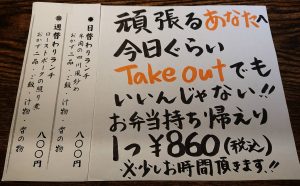 頑張るあなたへ
今日ぐらい
Take outでも
いいんじゃない!!
お弁当持ち帰り
1つ ¥860(税込)
※少しお時間頂きます!!
日替わりランチ
牛肉の四川風炒め
おかず二品・ご飯・汁物・香の物
八〇〇円
週替わりランチ
ローストポークの照り煮
おかず二品・ご飯・汁物・香の物
八〇〇円